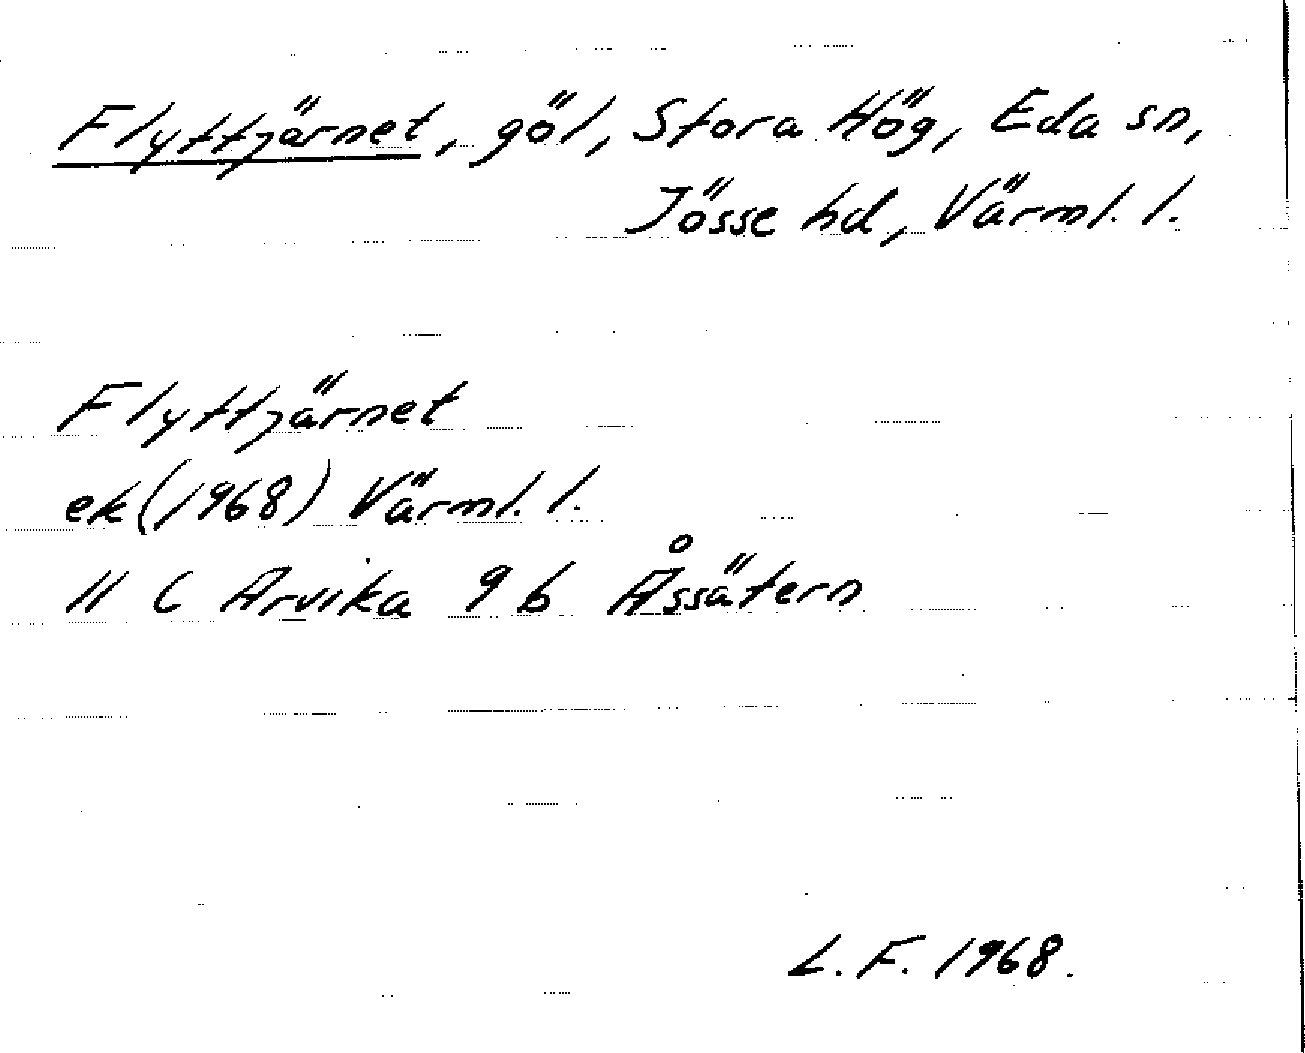 Flyttjärnet, göl, Stora Hög, Eda sn,
Jösse hd, Värml. l.
Flyttjärnet
ek (1968) Värml. l.
11 C Arvika 9 b Åssätern
L. F. 1968.